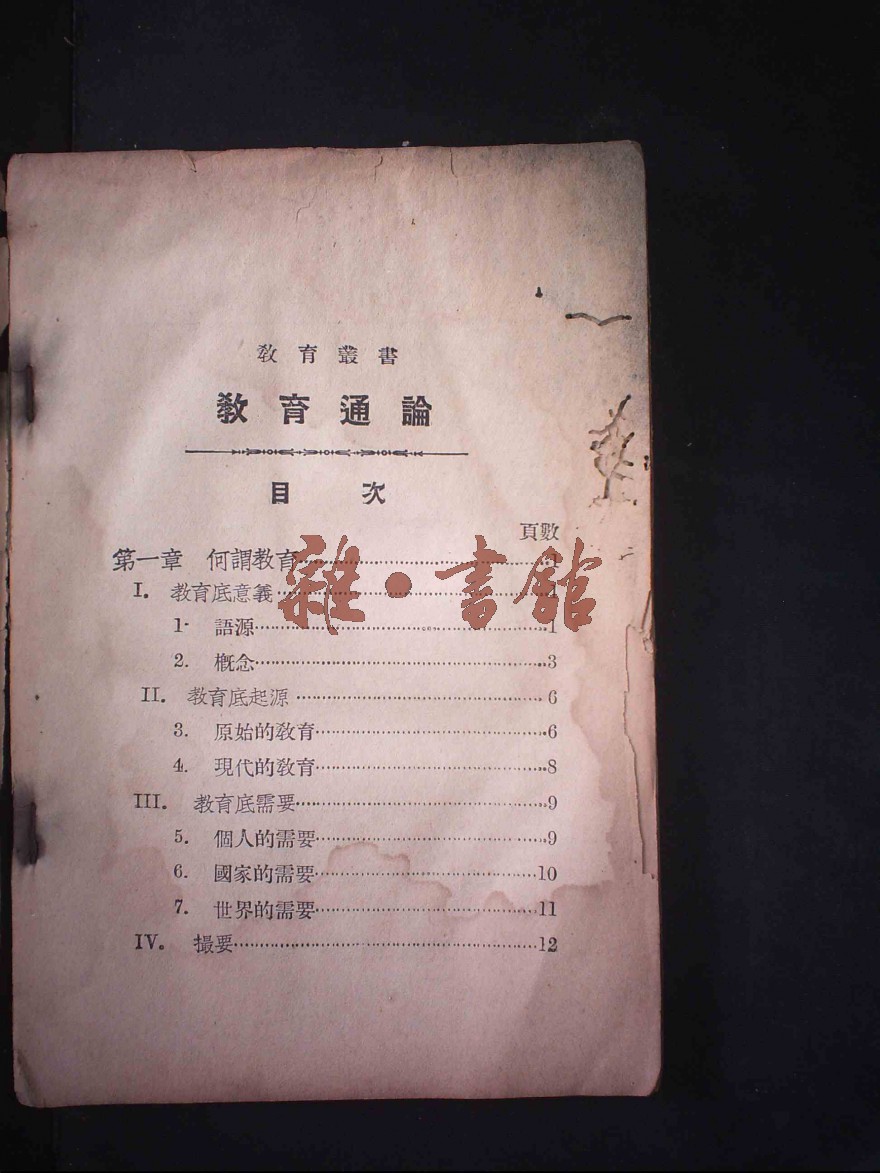 教育叢書
教育通論
目 次
頁數
第一章 何謂教育……1
I. 教育底意義……
1. 語源……1
2. 概念……3
II. 教育底起源……6
3. 原始的教育……6
4. 現代的教育……8
III. 教育底需要……9
5. 個人的需要……9
6. 國家的需要……10
7. 世界的需要……11
IV. 撮要……12
雜·書館